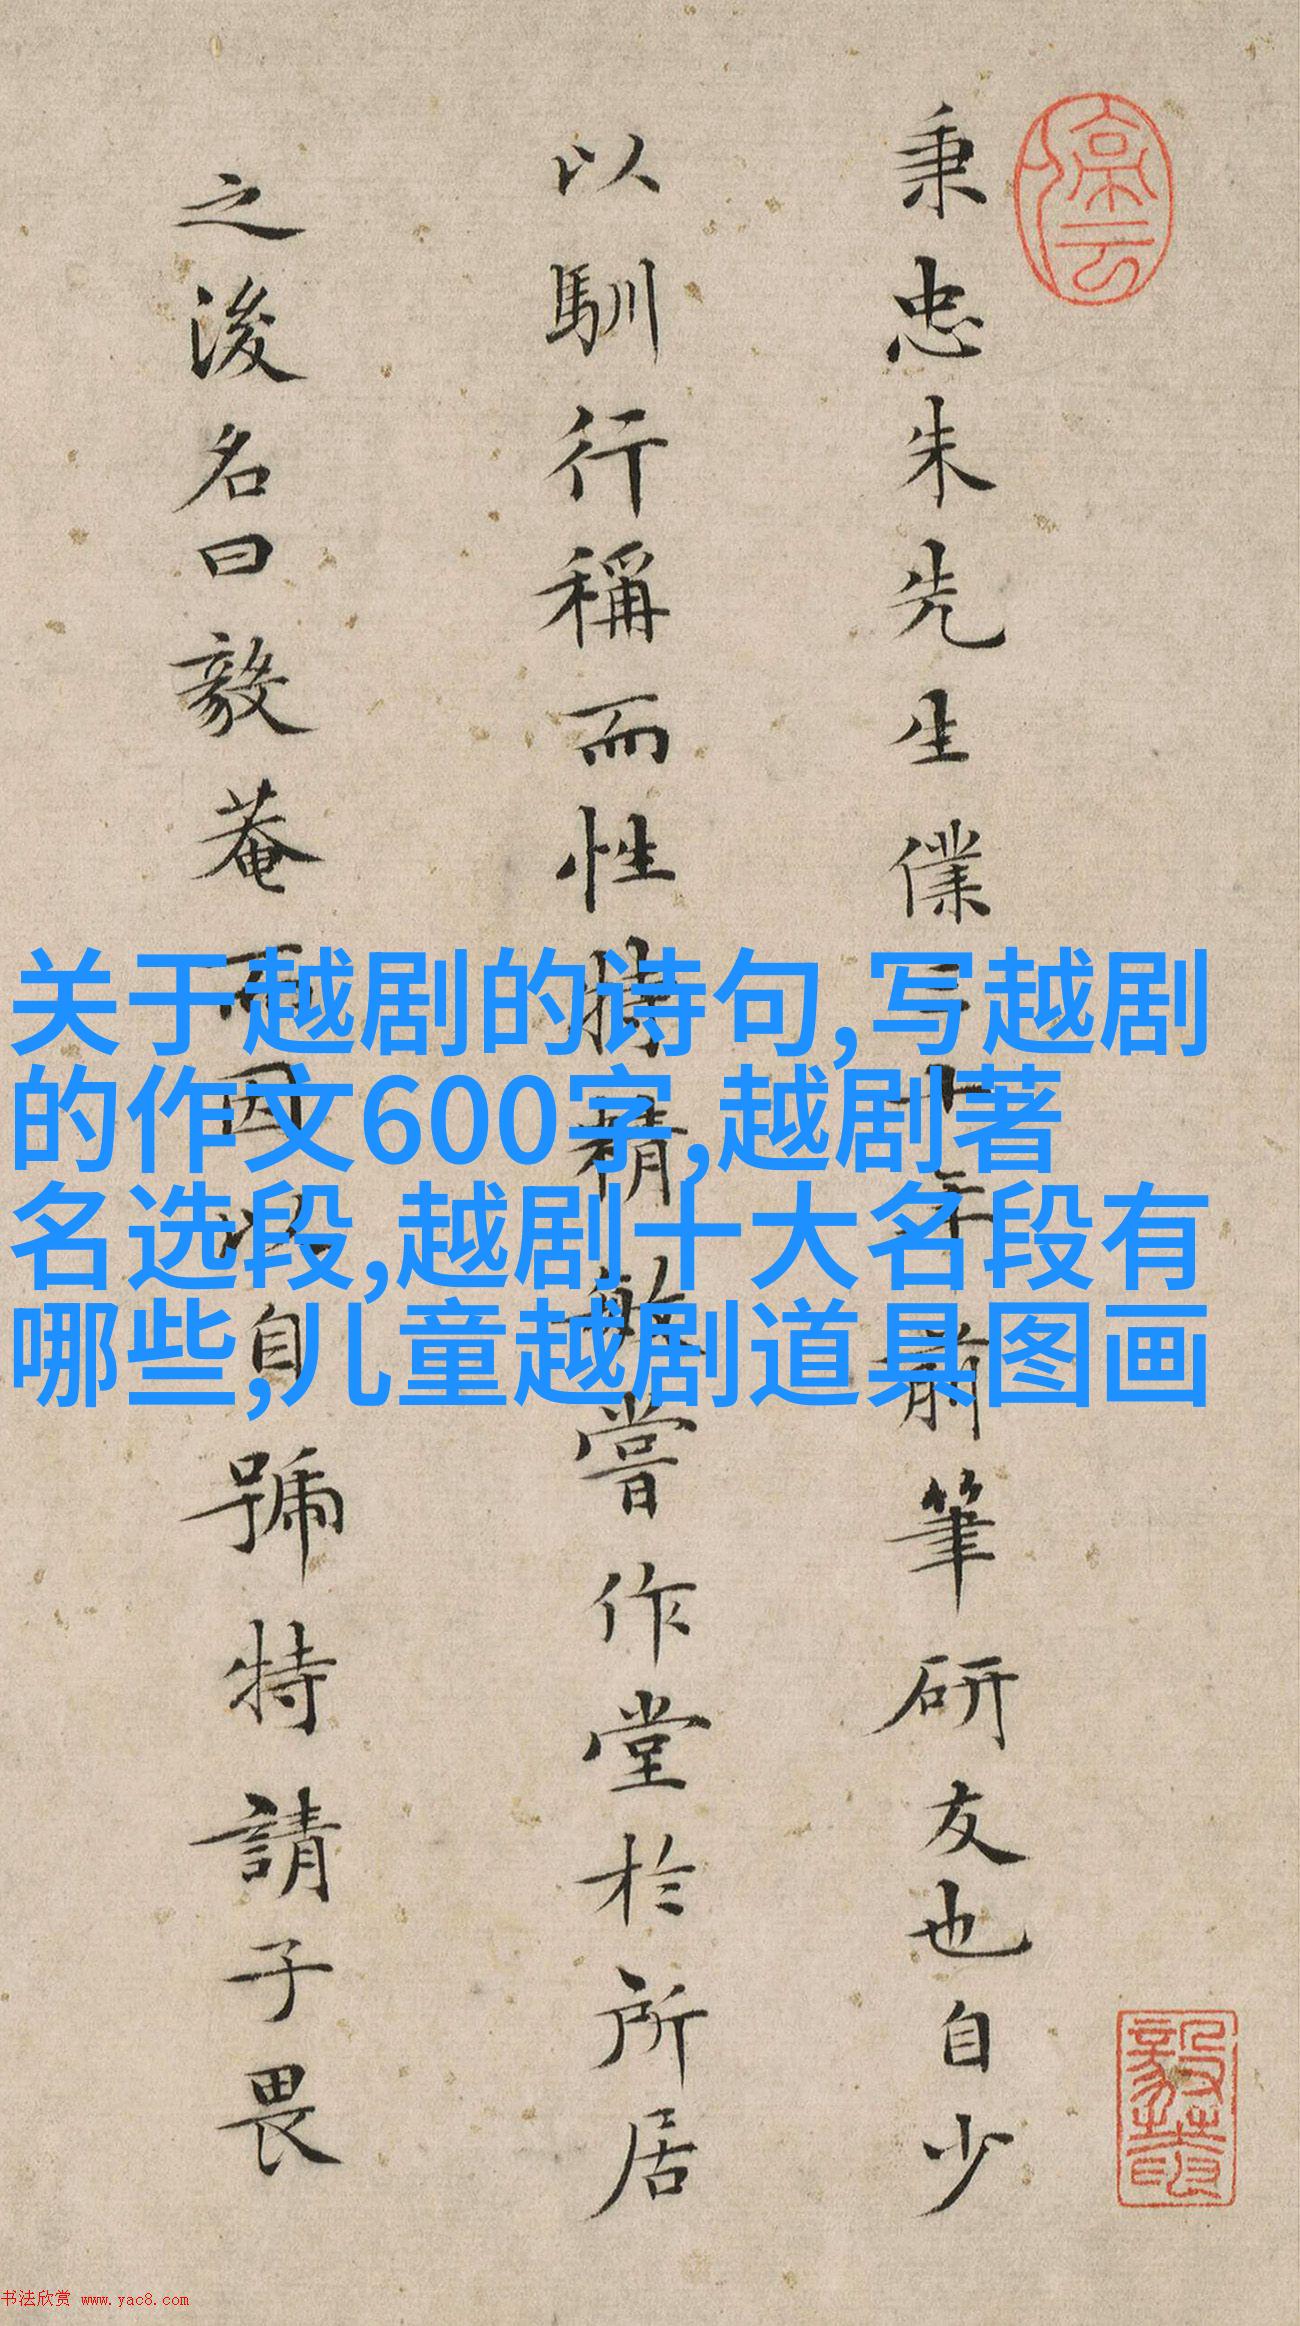 秉忠朱先生僕三十年前筆研友也自少
以馴行稱而性特精敏嘗作堂於所居
之後名曰毅菴而因以自號特請予畏
关于越剧的诗句,写越剧
的作文600字,越剧著
名选段,越剧十大名段有
哪些,儿童越剧道具图画
书法欣赏 www.yac8.com